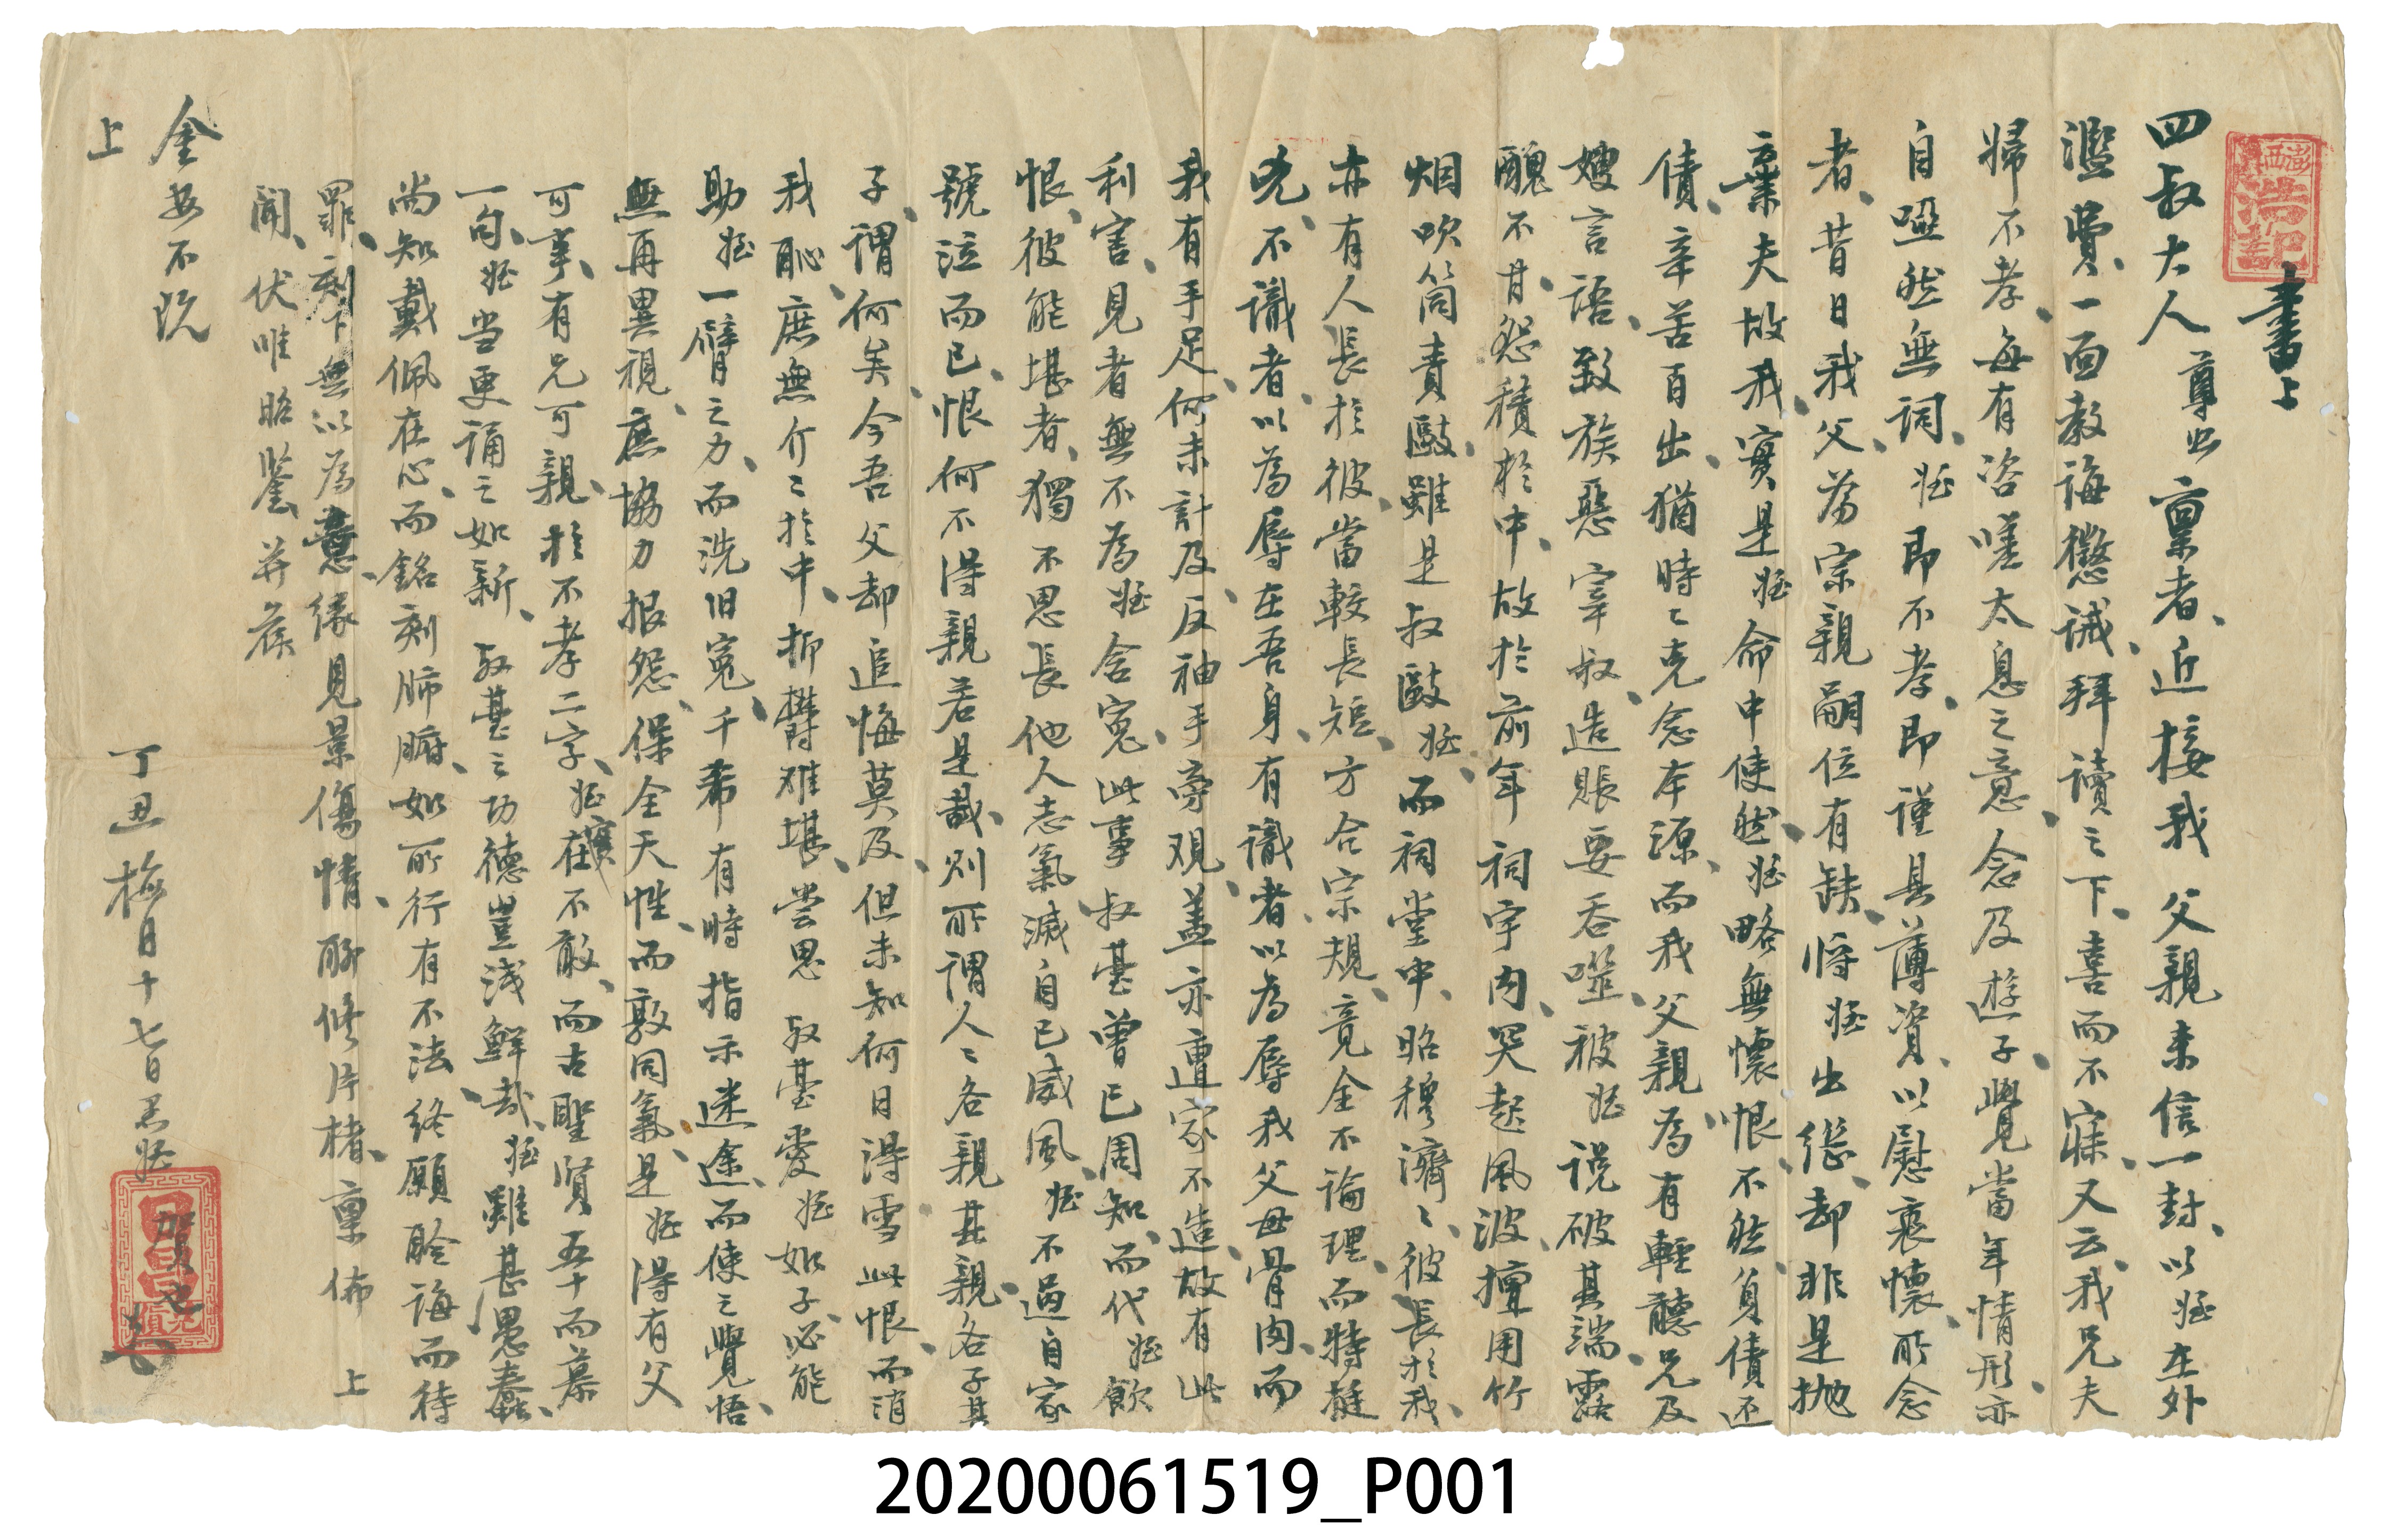 書上
四叔大人尊前稟者、近接我 父親來信一封、以姪在外
濫費、一面教誨懲誡、拜讀之下、喜而不寐、又云、我兄夫
婦不孝、每有咨嗟太息之意、念及遊子、覺當年情形、亦
自啞然無詞、姪即不孝、即謹具薄資、以慰哀懷、所念
者、昔日我父、為宗親嗣位有缺、將姪出繼、却非是拋
棄夫故我、實是姪命中使然、姪略無懷恨、不然、負債还
債、辛苦百出、猶時〻克念本源、而我父親為有輕聽兄及
嫂言語、致族惡宰叔、造賬要吞噬、被姪説破其端、露
醜不甘、怨積於中、故於前年祠宇內、哭起風波、擅用竹
烟吹筒責毆、雖是叔毆姪、而祠堂中、昭穆濟〻、彼長於我、
亦有人長於彼、當較長短、方合宗規、竟全不論理、而特挺
兇、不識者、以為辱在吾身、有識者、以為辱我父母骨肉、而
我有手足、何未計及、反袖手旁观、盖亦遭家不造、故有此
利害、見者無不為姪含冤、此事叔臺曾已周知、而代姪飲
恨、彼能堪者、獨不思長他人志氣滅自已威風、姪不過自家
號泣而已、恨何不得親若是哉、則所謂人〻各親其親、各子其
子、謂何矣、今吾父却追悔莫及、但未知何日得雪此恨、而消
我恥、庶無介〻於中、抑欝难堪、尝思 叔臺愛姪如子、必能
助姪一臂之力、而洗旧冤、千希有時指示迷途、而使之覺悟、
無再異視、庶協力报怨、保全天性、而敦同氣、是姪得有父
可事、有兄可親、於不孝二字、姪在實不敢、而古聖賢五十而慕
一句、姪当更誦之如新、 叔臺之功德豈浅鮮哉、姪雖甚愚蠢、
尚知戴佩在心、而銘刻肺腑、如所行有不法、終願聆誨而待
罪、刻下無以為意、緣見景傷情、聊修片楮、稟佈 上
聞、伏唯昭鑒、并候
金安不既
上
丁丑梅月十七日愚姪
20200061519_P001